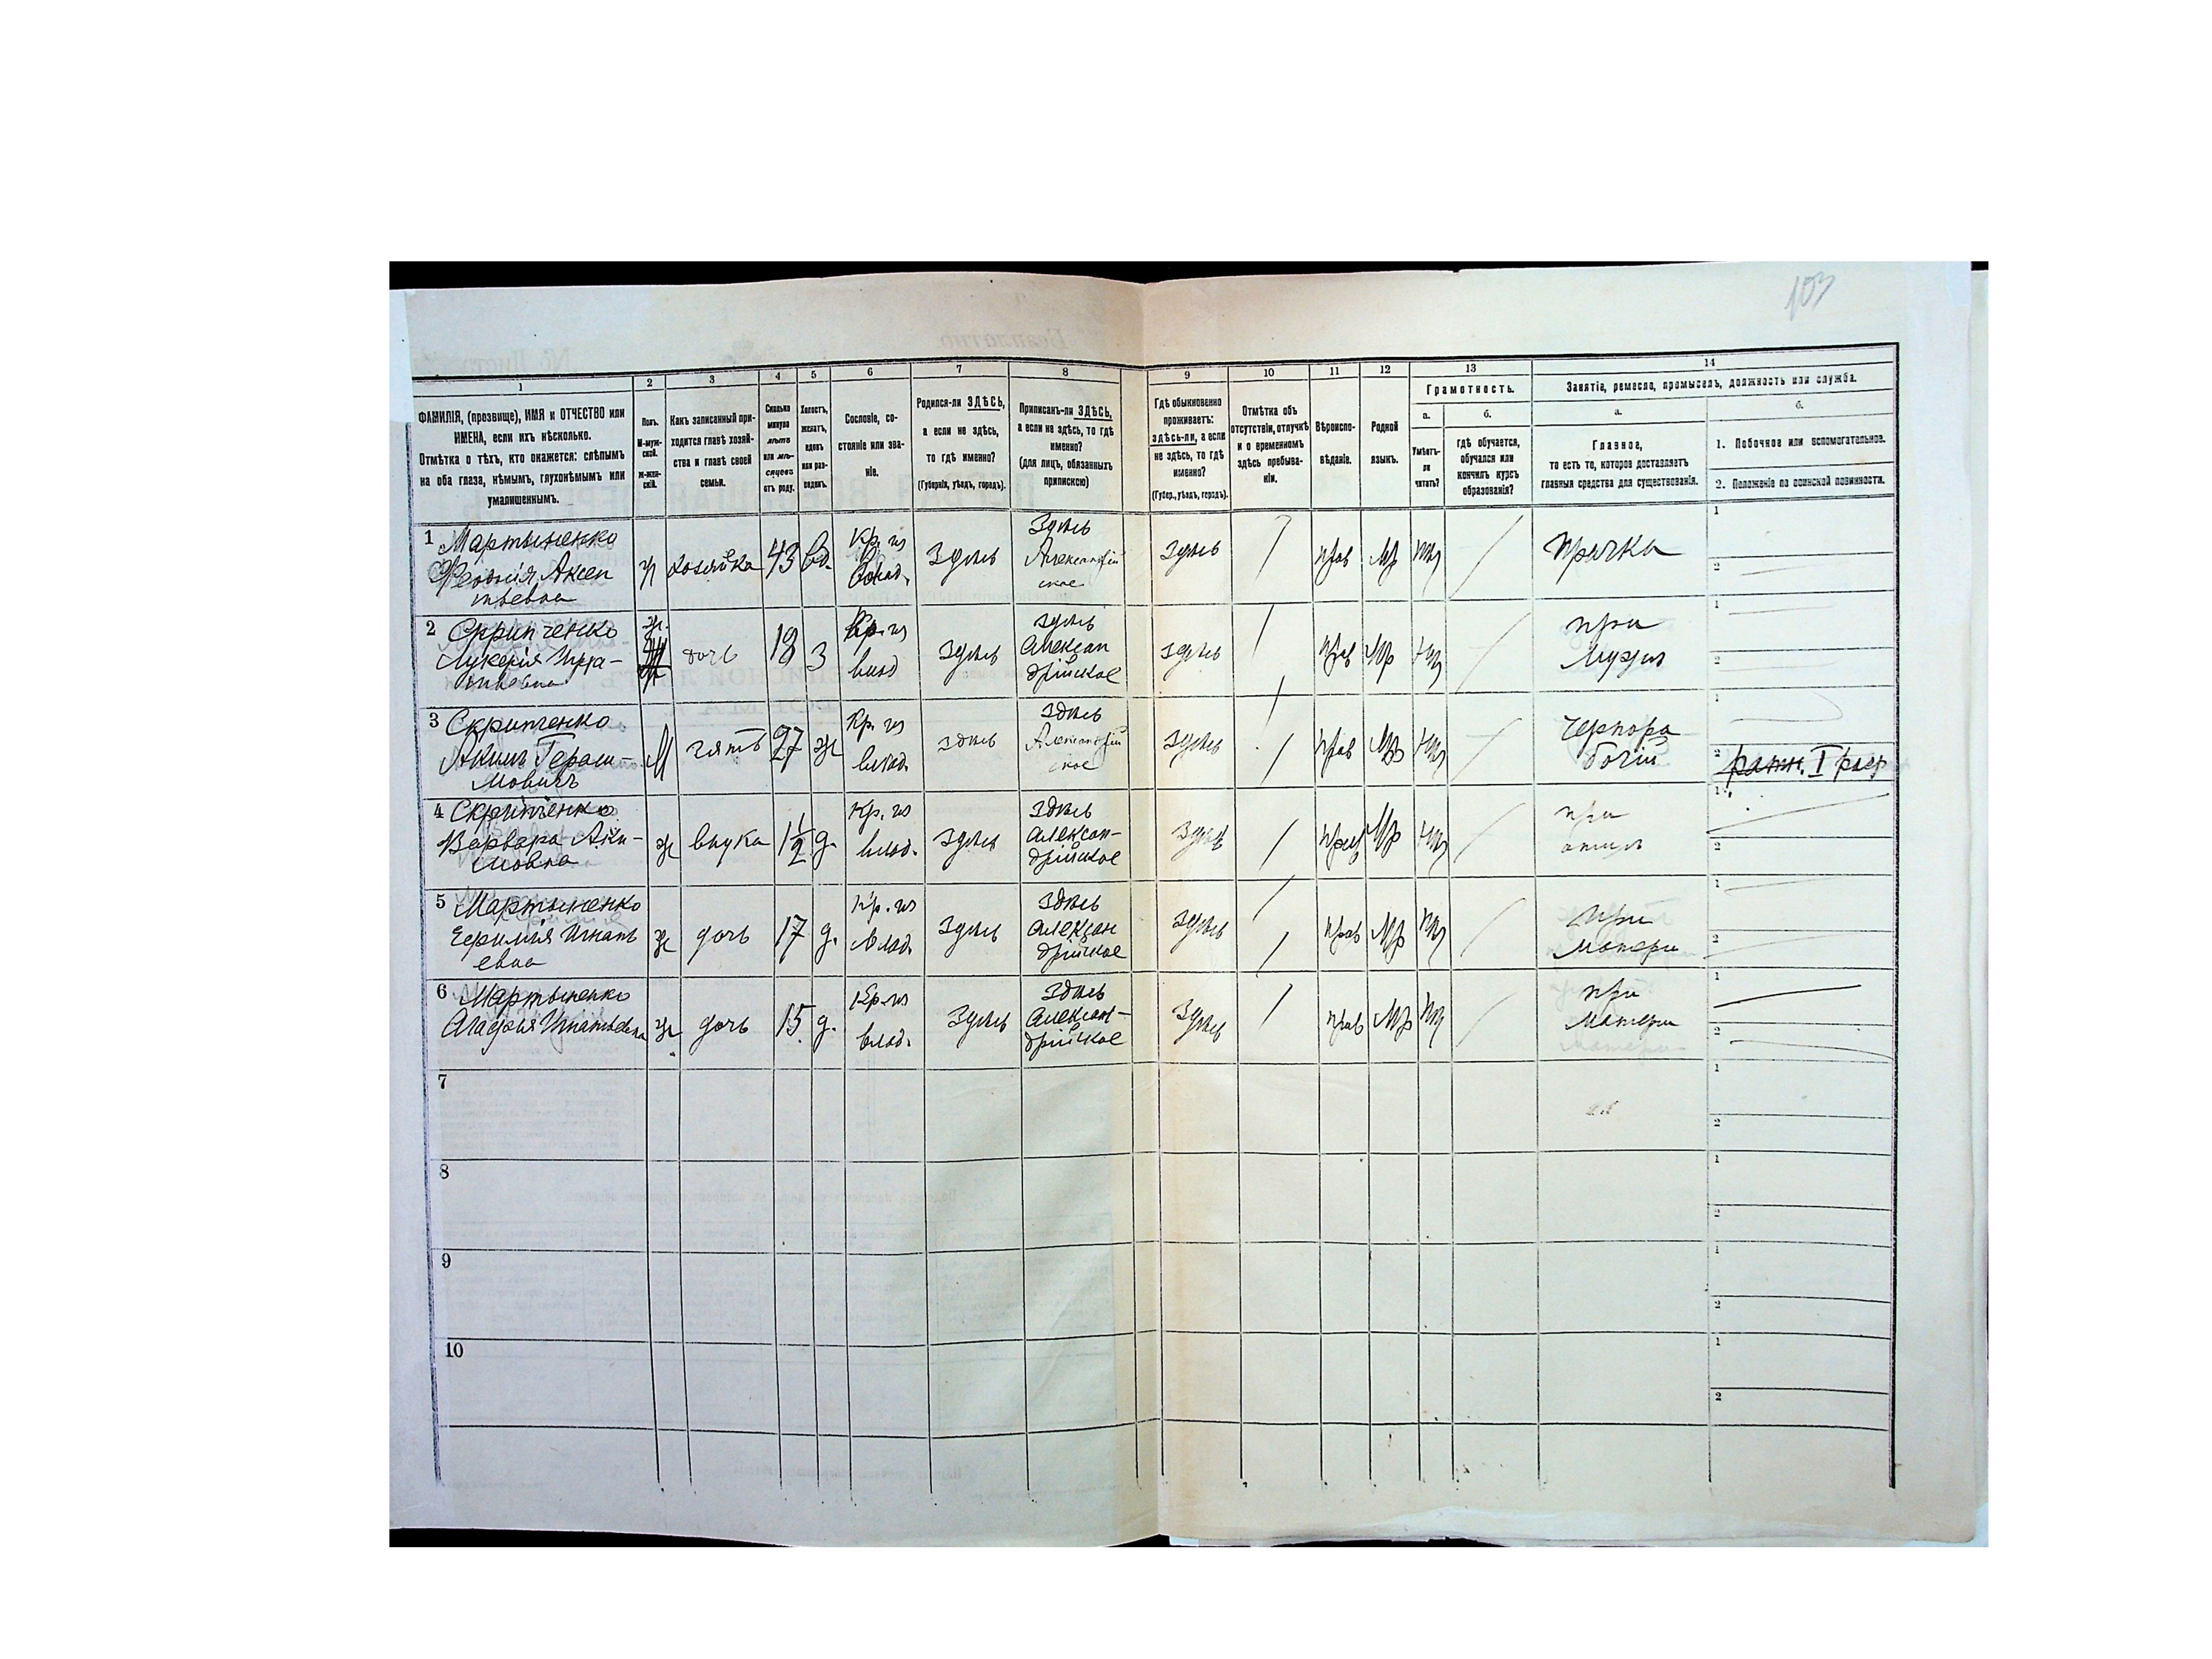 103
1 2 3 4 5 6 7 8 9 10 11 12 13 14
ФАМИЛІЯ, (прозвище), ИМЯ и ОТЧЕСТВО или
ИМЕНА, если ихъ нѣсколько.
Отмѣтка о тѣхъ, кто окажется: слѣпымъ
на оба глаза, нѣмымъ, глухонѣмымъ или
умалишеннымъ.
Полъ.
М-муж-
ской.
Ж-жен-
скій.
Какъ записанный при-
ходится главѣ хозяй-
ства и главѣ своей
семьи.
Сколько
минуло
лѣтъ
или мѣ-
сяцевъ
отъ роду.
Холостъ,
женатъ,
вдовъ
или раз-
веденъ.
Сословіе, со-
стояніе или зва-
ніе.
Родился-ли ЗДѢСЬ,
а если не здѣсь,
то гдѣ именно?
(Губернія, уѣздъ, городъ).
Приписанъ-ли ЗДѢСЬ,
а если не здѣсь, то гдѣ
именно?
(для лицъ, обязанныхъ
припискою)
Гдѣ обыкновенно
проживаетъ:
здѣсь-ли, а если
не здѣсь, то гдѣ
именно?
(Губер., уѣздъ, городъ).
Отмѣтка объ
отсутствіи, отлучкѣ
и о временномъ
здѣсь пребыва-
ніи.
Вѣроиспо-
вѣданіе.
Родной
языкъ.
Грамотность.
а.
Умѣетъ-
ли
читать?
б.
Гдѣ обучается,
обучался или
кончилъ курсъ
образованія?
Занятіе, ремесло, промыселъ, должность или служба.
а.
Главное,
то есть то, которое доставляетъ
главныя средства для существованія.
б.
1. Побочное или вспомогательное.
2. Положеніе по воинской повинности.
1 Мартыненко
Феодосія Аксен
тьевна
хозяйка 43 вд.
Кр. из
влад.
здѣсь
Здѣсь
Александрій
ское
здѣсь
прав
Мр
Прачка
1
2
2 Скрипченко
Лукерія Игна-
тьевна
ж.
дочь 18 з
Кр. из
влад
здѣсь
здѣсь
Алексан
дрійское
здѣсь
прав
Мр
при
мужѣ
1
2
3 Скрипченко
Акимъ Гераси-
мовичъ
М зять 27 ж
Кр. из
влад.
здѣсь
здѣсь
Александрій
ское
здѣсь
прав
Мр
Чернора
бочій
1
2 ратн. I разр
4 Скрипченко
Варвара Аки-
мовна
ж внука 1½ д.
Кр. из
влад.
здѣсь
здѣсь
Алексан-
дрійское
здѣсь
прав
Мр
при
отцѣ
1
2
5 Мартыненко
Ефимія Игнать
евна
ж дочь 17 д.
Кр. из
влад.
здѣсь
здѣсь
Алексан
дрійское
здѣсь
прав
Мр
при
матери
1
2
6 Мартыненко
Агафья Игнатьевна
ж дочь 15 д.
Кр. из
влад.
здѣсь
здѣсь
Алексан-
дрійское
здѣсь
прав
Мр
при
матери
1
2
7
1
2
8
1
2
9
1
2
10
1
2